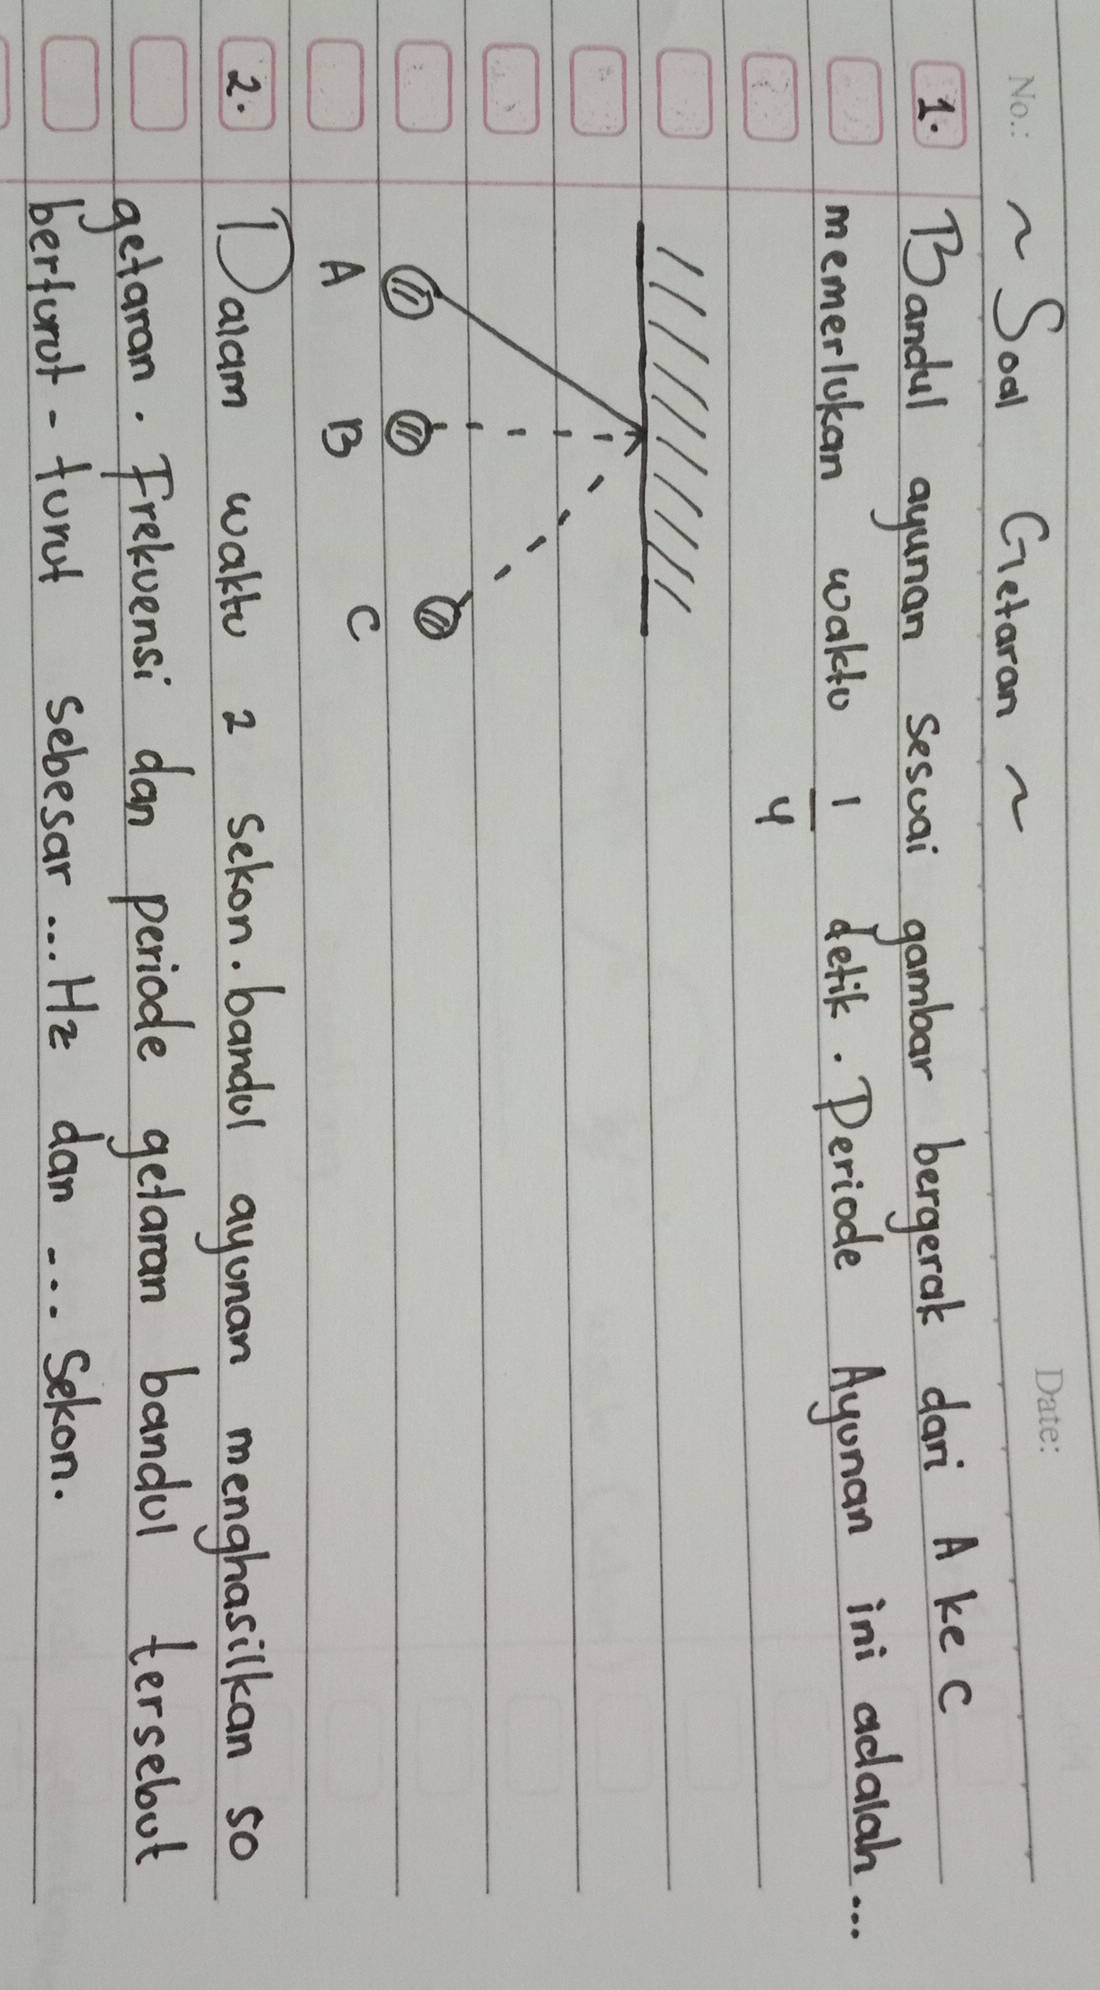 No.: Date:
~ Soal Getaran ~
1. Bandul ayunan sesuai gambar bergerak dari A ke C
memerlukan waktu 1/4 detik. Periode Ayunan ini adalah...
A B C
2. Dalam waktu 2 sekon. bandul ayunan menghasilkan 50
getaran. Frekuensi dan periode getaran bandul tersebut
berturut-turut sebesar...Hz dan ... Sekon.